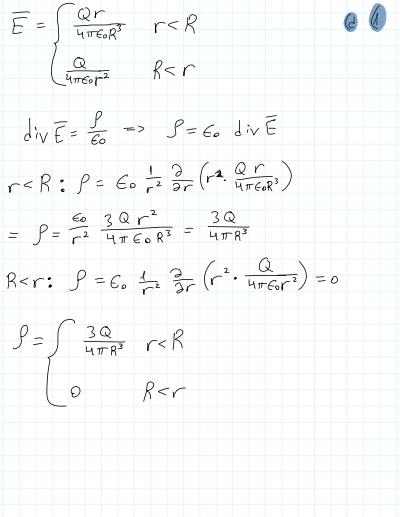 d 1
E̅ = { Qr / 4πε₀R³   r < R
Q / 4πε₀r²   R < r
div E̅ = ρ / ε₀ ⇒ ρ = ε₀ div E̅
r < R : ρ = ε₀ 1/r² ∂/∂r (r² · Q r / 4πε₀R³)
= ρ = ε₀/r² 3Qr² / 4πε₀R³ = 3Q / 4πR³
R < r : ρ = ε₀ 1/r² ∂/∂r (r² · Q / 4πε₀r²) = 0
ρ = { 3Q / 4πR³   r < R
0   R < r